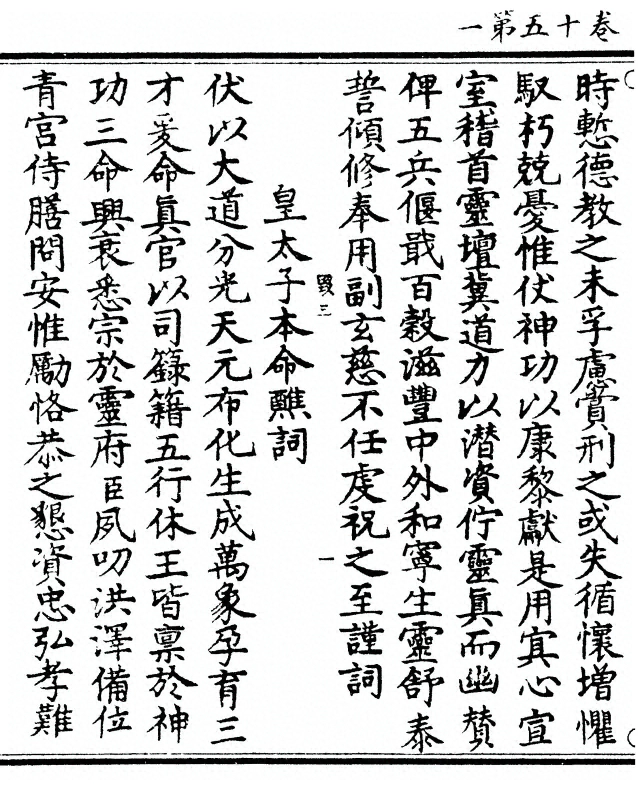 卷十五第一
時慙德教之未孚慮賞刑之或失循懷增懼
馭朽兢憂惟仗神功以康黎獻是用寘心宣
室稽首靈壇冀道力以潛資佇靈眞而幽贊
俾五兵偃戢百穀滋豐中外和寧生靈舒泰
誓傾修奉用副玄慈不任虔祝之至謹詞
毀三 一
皇太子本命醮詞
伏以大道分光天元布化生成萬象孕育三
才爰命眞官以司籙籍五行休王皆禀於神
功三命興衰悉宗於靈府臣夙叨洪澤備位
青宮侍膳問安惟勵恪恭之懇資忠弘孝難